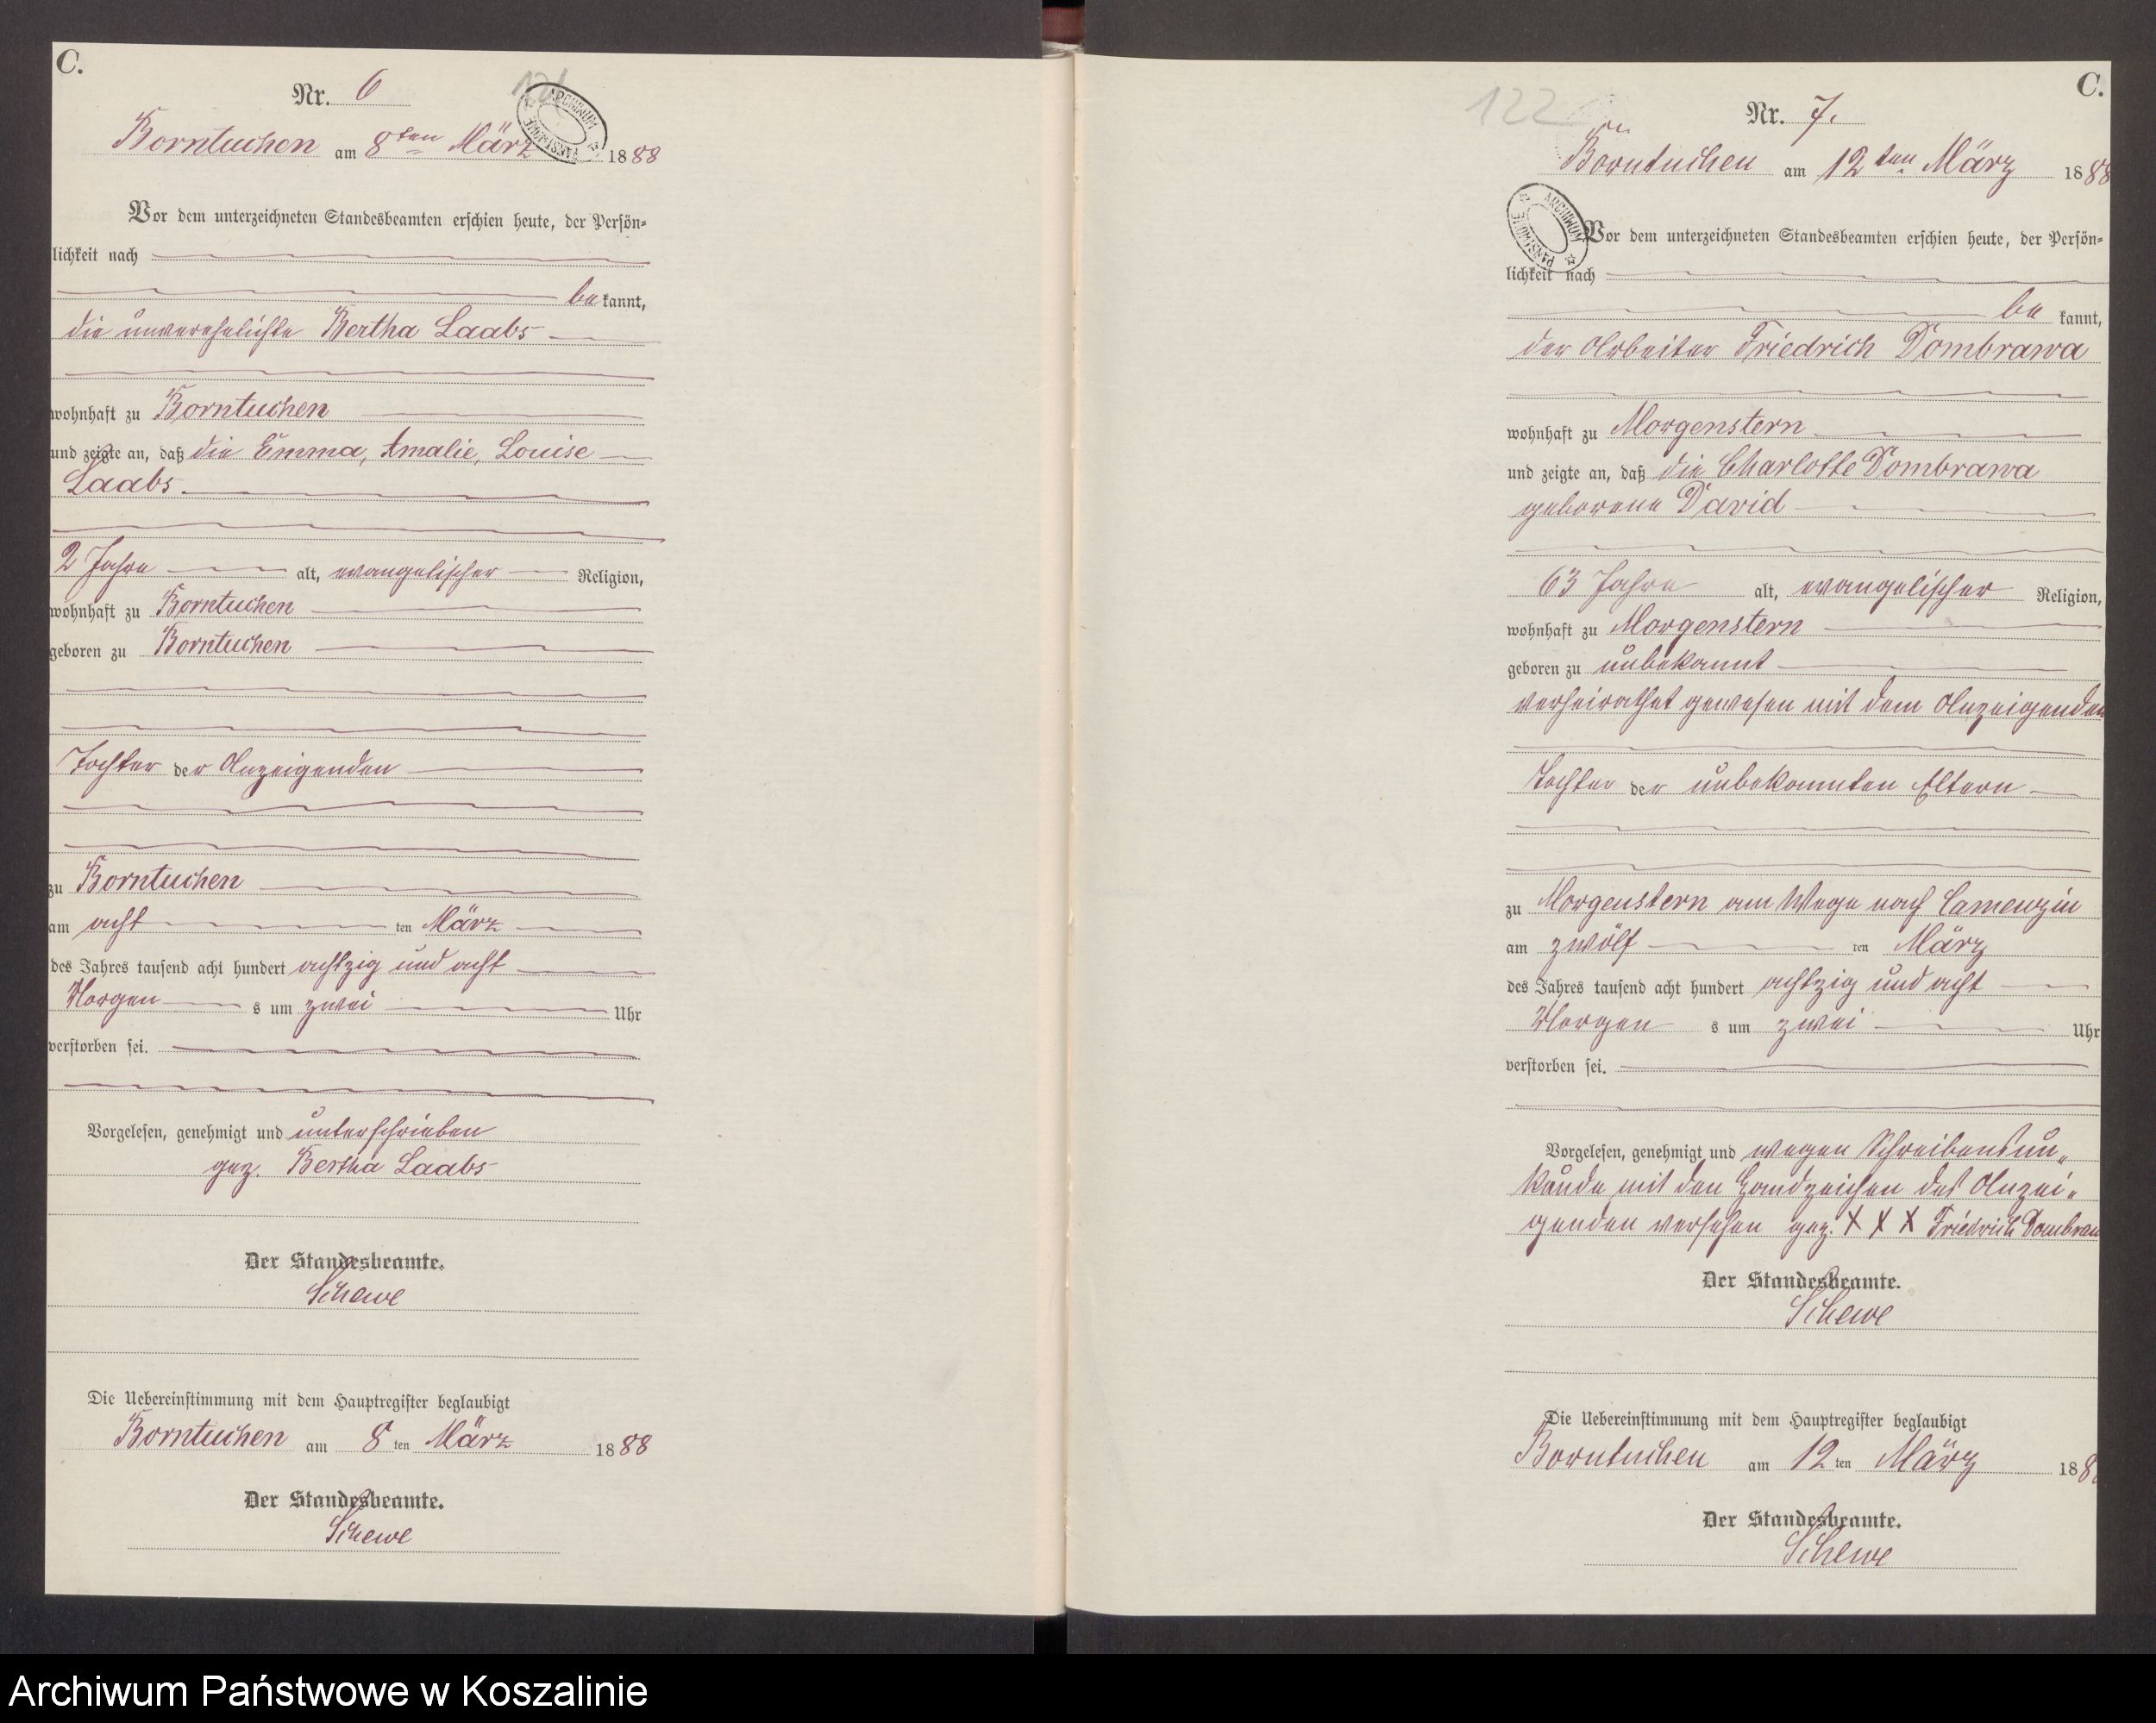 C.
Nr. 6
121
ARCHIWUM PAŃSTWOWE
Borntuchen am 8ten März 1888
Vor dem unterzeichneten Standesbeamten erschien heute, der Persön-
lichkeit nach
be kannt,
die unverehelichte Bertha Laabs
wohnhaft zu Borntuchen
und zeigte an, daß die Emma, Amalie, Louise
Laabs
2 Jahre alt, evangelischer Religion,
wohnhaft zu Borntuchen
geboren zu Borntuchen
Tochter der Anzeigenden
zu Borntuchen
am acht ten März
des Jahres tausend acht hundert achtzig und acht
Morgen s um zwei Uhr
verstorben sei.
Vorgelesen, genehmigt und unterschrieben
gez. Bertha Laabs
Der Standesbeamte.
Schewe
Die Uebereinstimmung mit dem Hauptregister beglaubigt
Borntuchen am 8 ten März 1888
Der Standesbeamte.
Schewe
C.
122
Nr. 7.
Borntuchen am 12ten März 1888
ARCHIWUM PAŃSTWOWE
Vor dem unterzeichneten Standesbeamten erschien heute, der Persön-
lichkeit nach
be kannt,
der Arbeiter Friedrich Dombrawa
wohnhaft zu Morgenstern
und zeigte an, daß die Charlotte Dombrawa
geborene David
63 Jahre alt, evangelischer Religion,
wohnhaft zu Morgenstern
geboren zu unbekannt
verheirathet gewesen mit dem Anzeigenden
Tochter der unbekannten Eltern
zu Morgenstern am Wege nach Camenzin
am zwölf ten März
des Jahres tausend acht hundert achtzig und acht
Morgen s um zwei Uhr
verstorben sei.
Vorgelesen, genehmigt und wegen Schreibensun-
kunde mit den Handzeichen des Anzei-
genden versehen gez. X X X Friedrich Dombraw
Der Standesbeamte.
Schewe
Die Uebereinstimmung mit dem Hauptregister beglaubigt
Borntuchen am 12 ten März 188
Der Standesbeamte.
Schewe
Archiwum Państwowe w Koszalinie